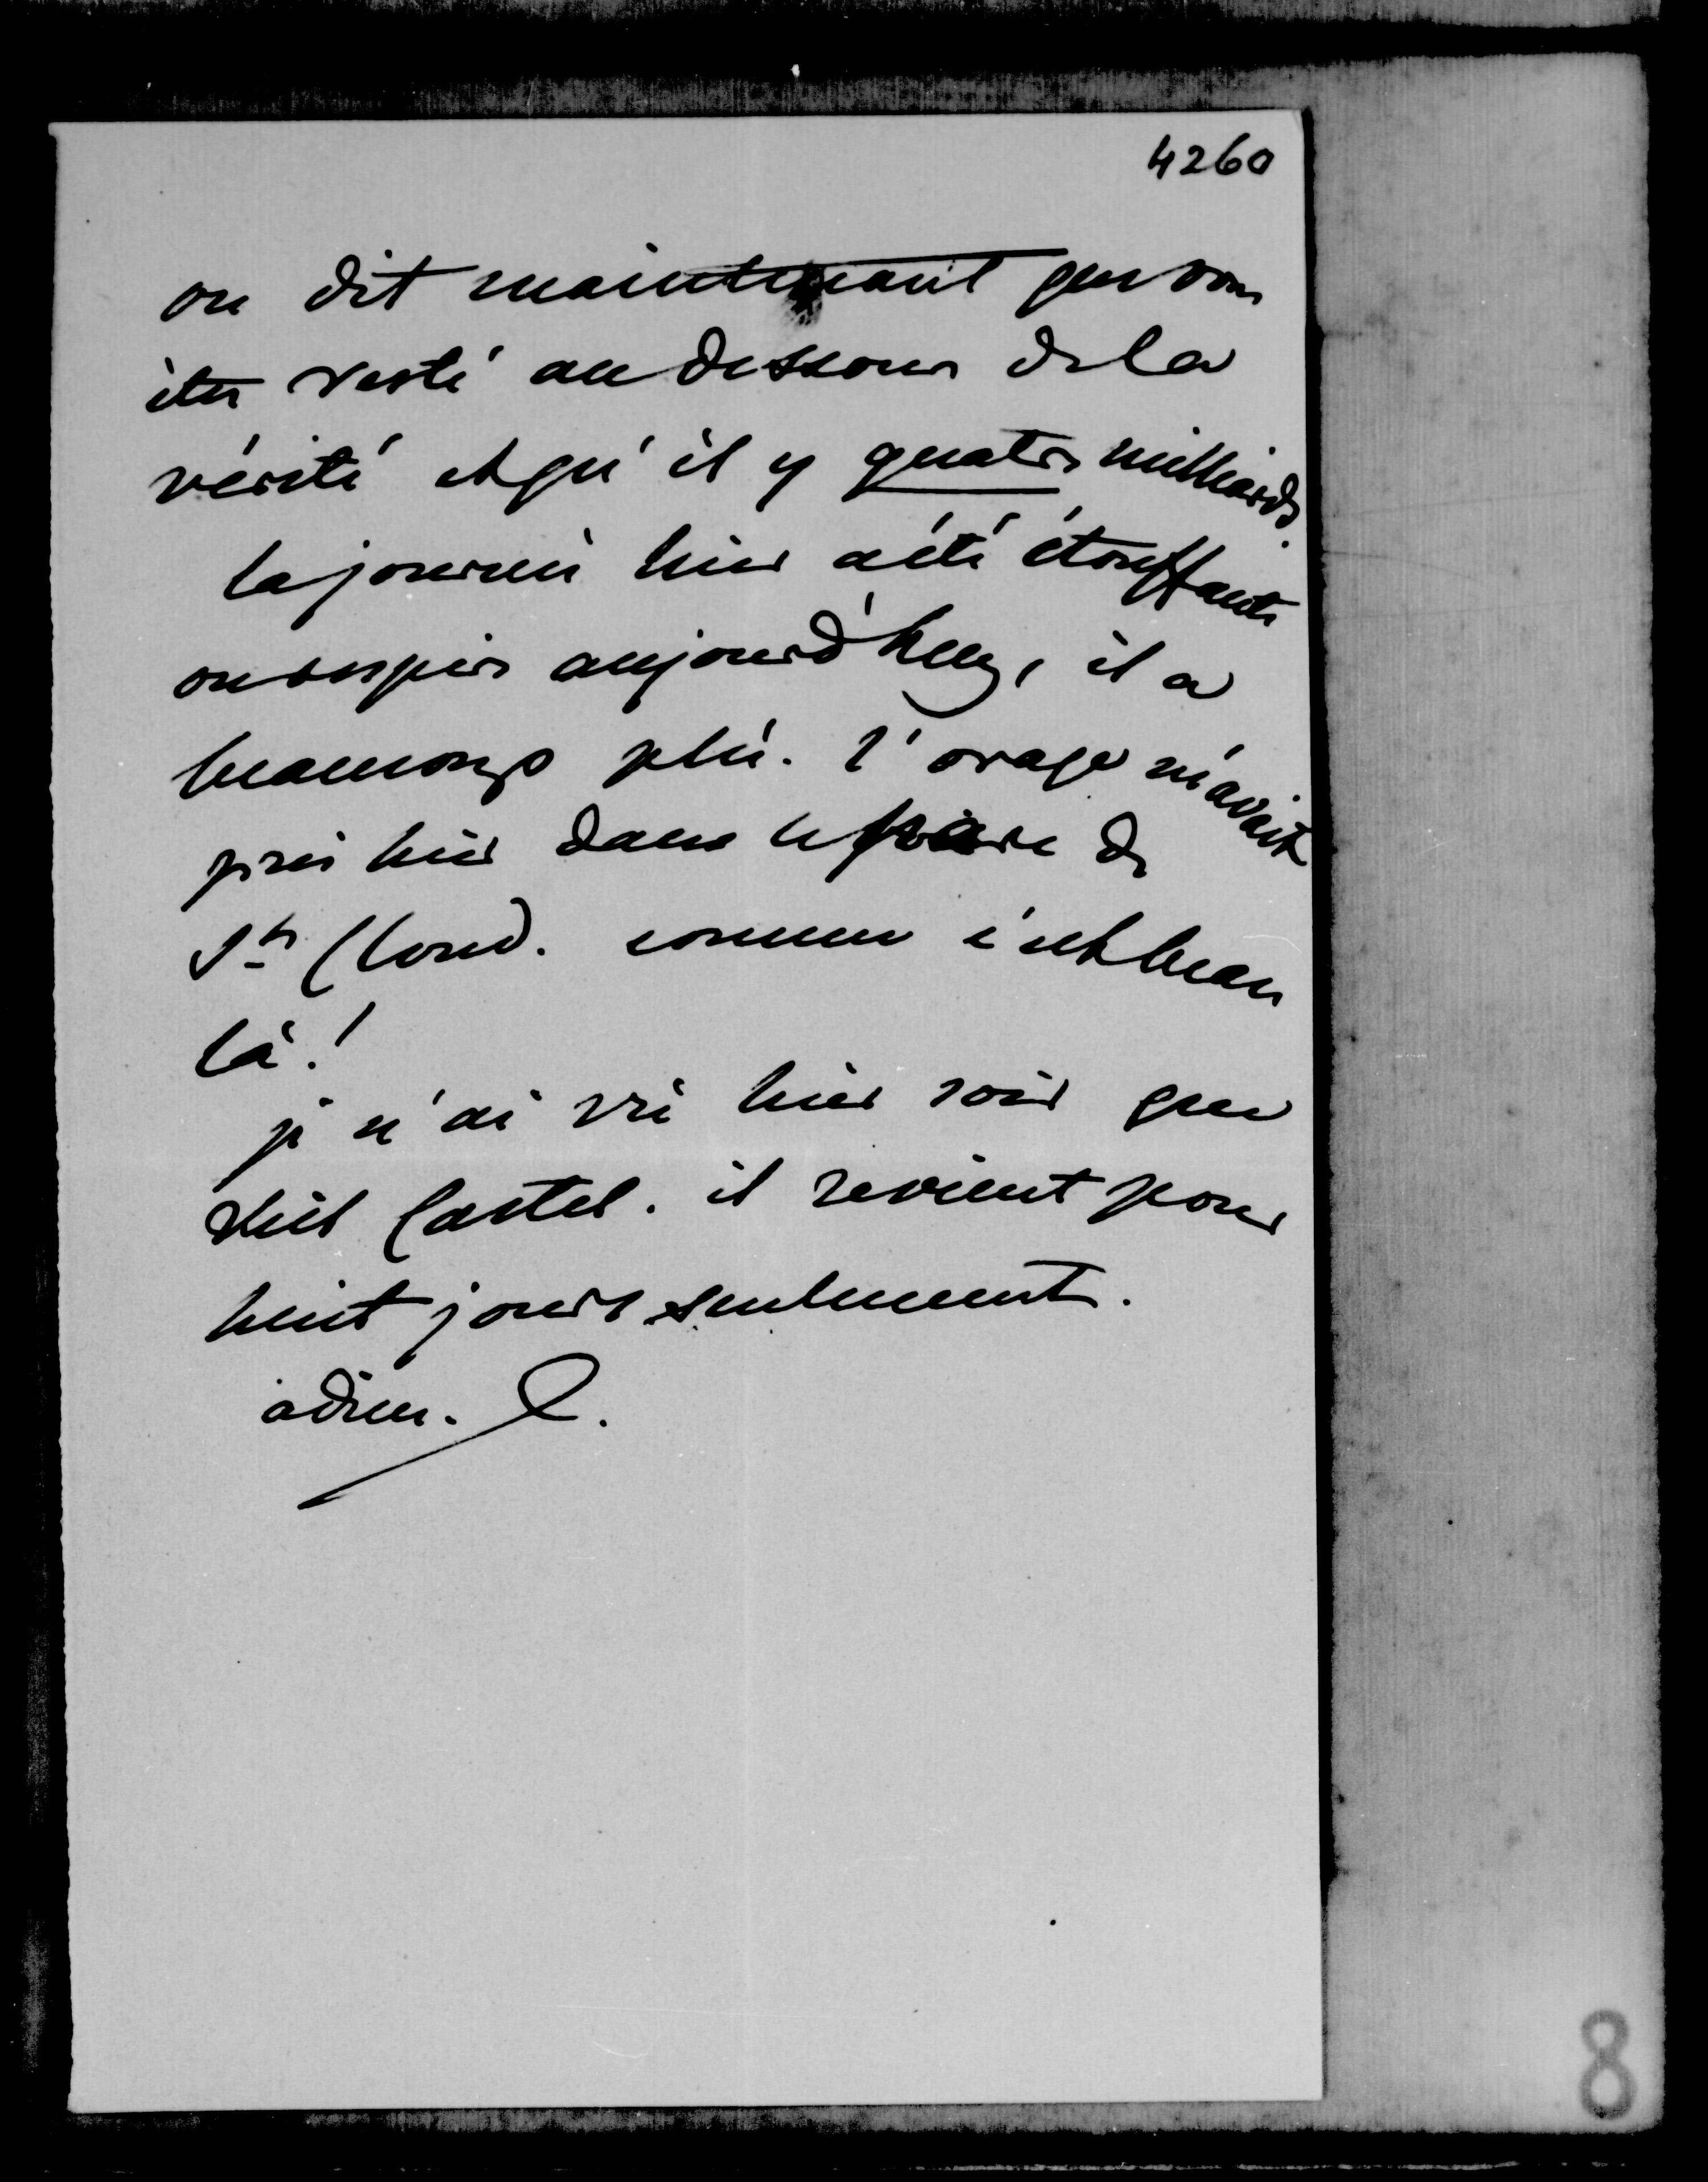 4260
on dit maintenant que vous
êtes resté au dessous de la
vérité et qu'il y quatre milliards.
la journée hier a été étouffante
on respire aujourd'huy, il a
beaucoup plu. l'orage m'avait
pris hier dans le parc de
St Cloud. comme c'est beau
là !
je n'ai vu hier soir que
Viel Castel. il revient pour
huit jours seulement.
adieu.
8